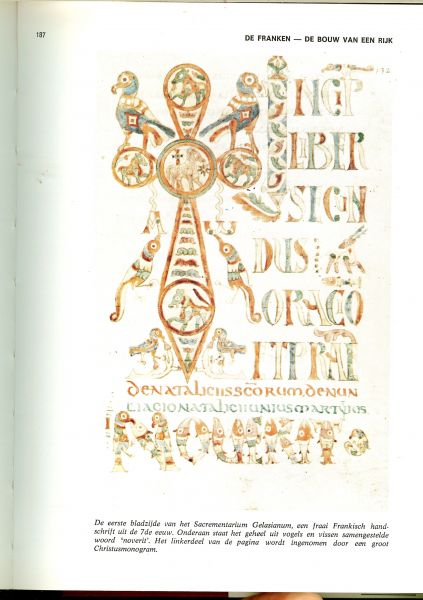 187
DE FRANKEN — DE BOUW VAN EEN RIJK
INCIP
LIBER
SECUN
A ω
DUS
ORACIO
DENATALICIISSCORUM.DENUN
CIACIONATALICIIUNIUSMARTYRIS
NOVERIT
De eerste bladzijde van het Sacrementarium Gelasianum, een fraai Frankisch hand-
schrift uit de 7de eeuw. Onderaan staat het geheel uit vogels en vissen samengestelde
woord 'noverit'. Het linkerdeel van de pagina wordt ingenomen door een groot
Christusmonogram.